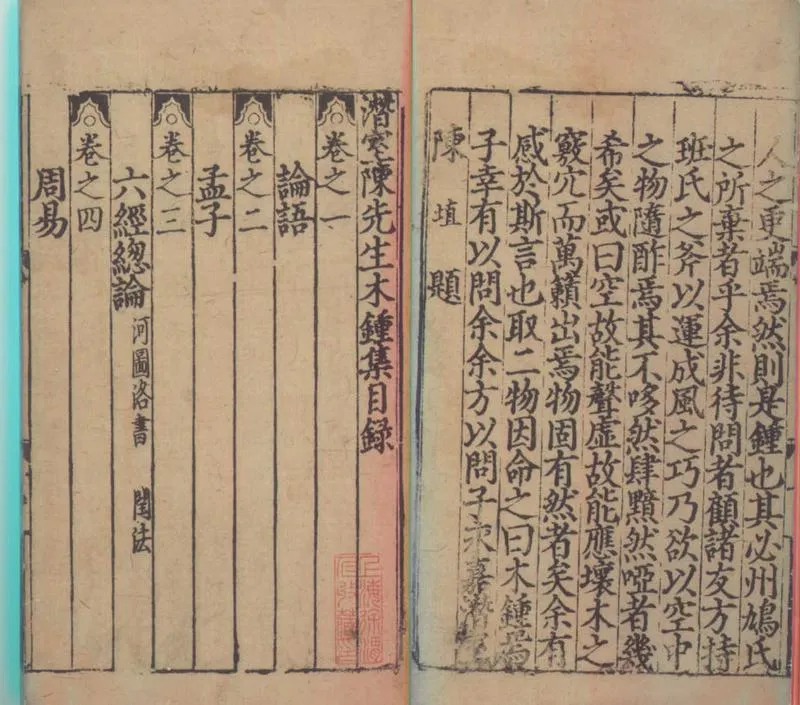 人之更端焉然則是鍾也其必州鳩氏
之所棄者乎余非待問者顧諸友方持
班氏之斧以運成風之巧乃欲以空中
之物隨酢焉其不哆然肆黯然啞者幾
希矣或曰空故能聲虛故能應壞木之
竅穴而萬籟出焉物固有然者矣余有
感於斯言也取二物因命之曰木鍾焉
子幸有以問余余方以問子永嘉潛室
陳埴題
潛室陳先生木鍾集目録
卷之一
論語
卷之二
孟子
卷之三
六經總論 河圖洛書 閏法
卷之四
周易